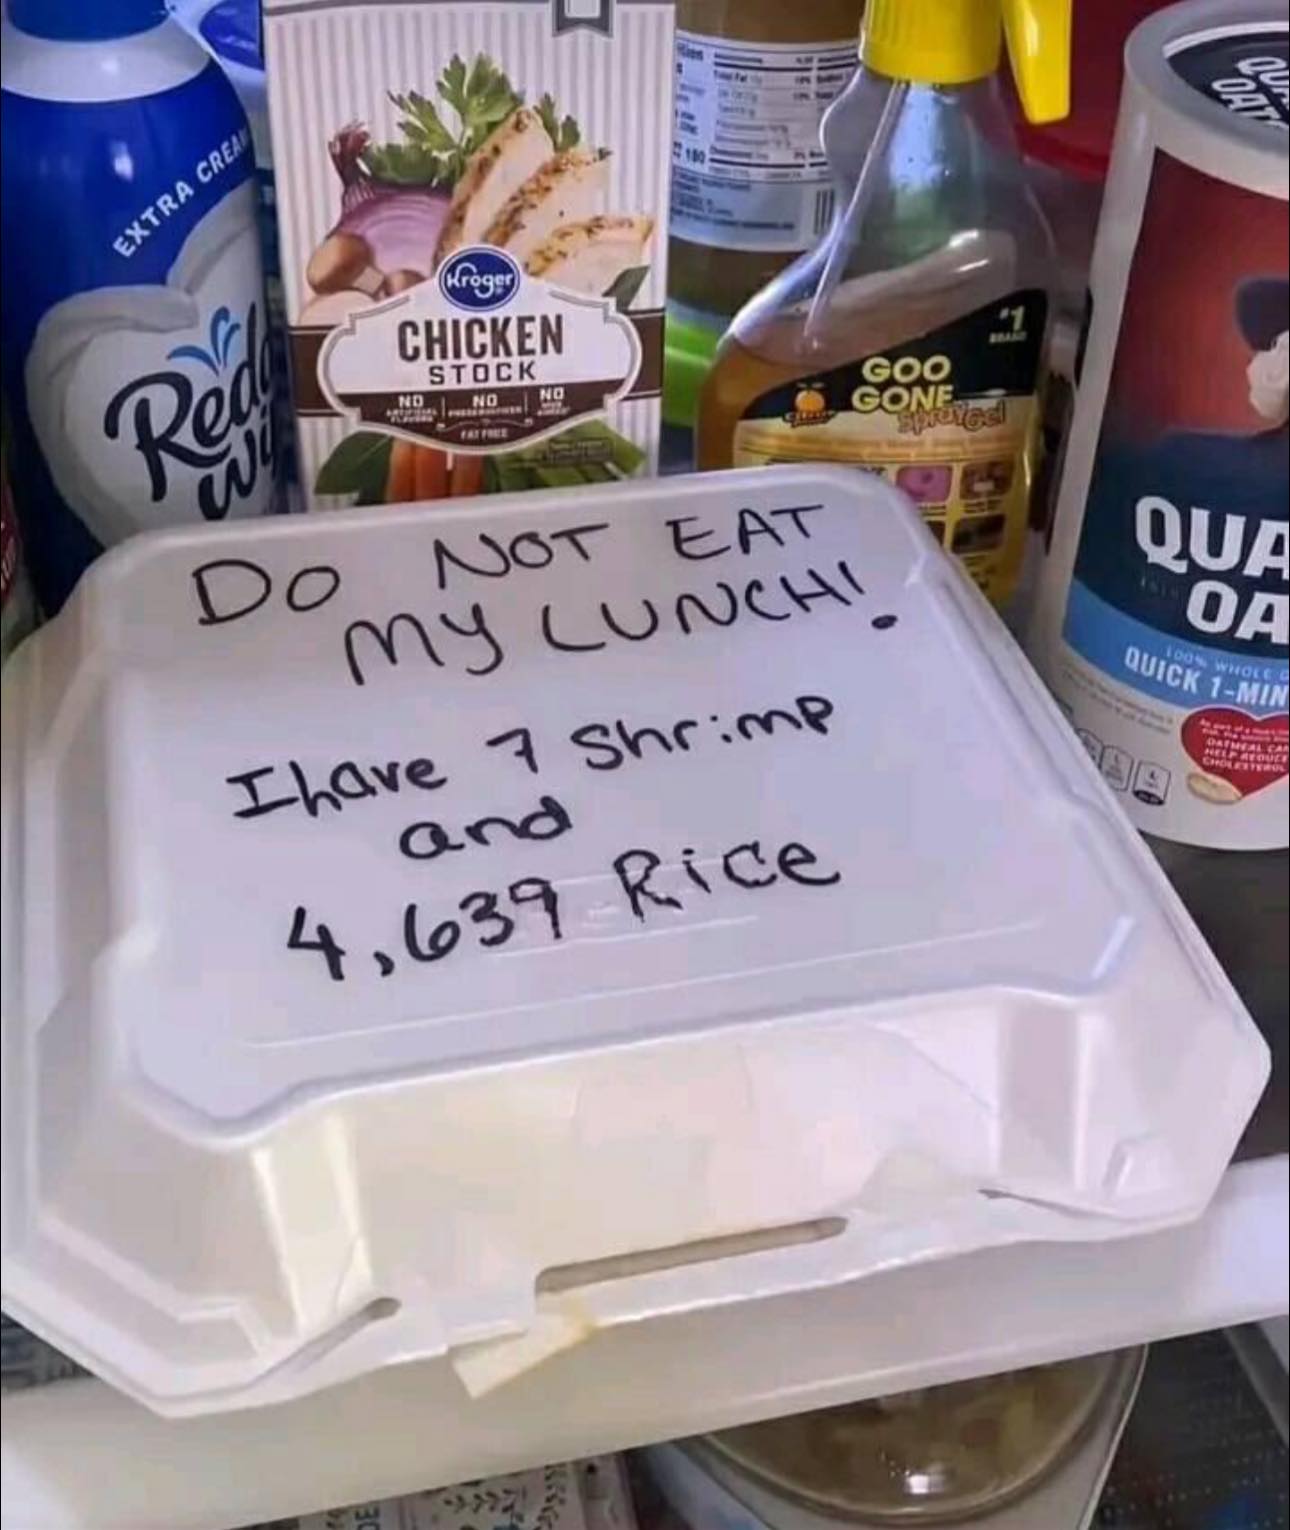 EXTRA CREAM
Kroger
CHICKEN
STOCK
NO
NO
NO
FAT FREE
180
#1
BRAND
GOO
GONE
Spray Gel
QUA
OA
100% WHOLE G
QUICK 1-MIN
OATMEAL CAN
HELP REDUCE
CHOLESTEROL
DO NOT EAT
MY LUNCH!
I have 7 Shrimp
and
4,639 Rice